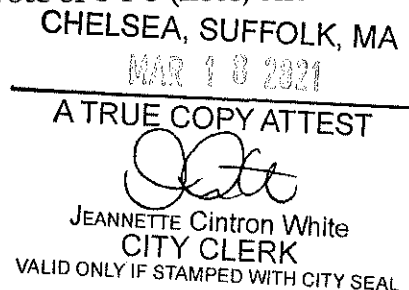 CHELSEA, SUFFOLK, MA
MAR 1 8 2021
A TRUE COPY ATTEST
JEANNETTE Cintron White
CITY CLERK
VALID ONLY IF STAMPED WITH CITY SEAL